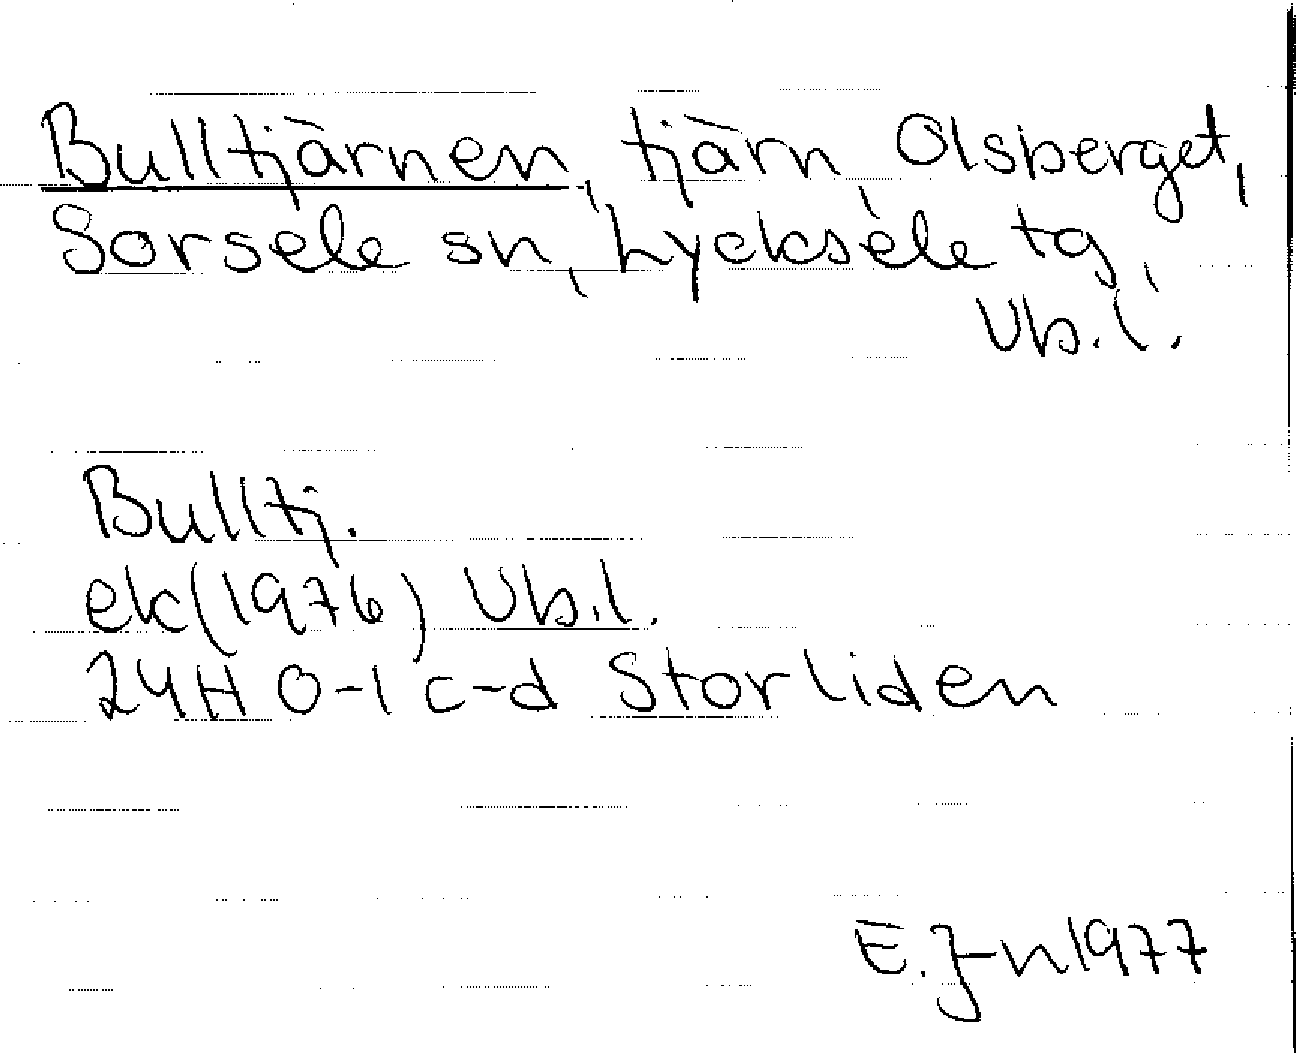 Bulltjärnen, tjärn, Olsberget,
Sorsele sn, Lycksele tg,
Vb.l.
Bulltj.
ek(1976) Vb.l.
24H 0-1 c-d Storliden
E. J-n 1977